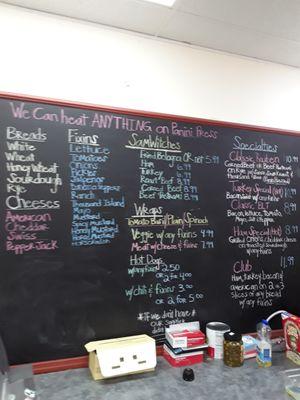 We Can heat ANYTHING on Panini Press
Breads
White
Wheat
Honey Wheat
Sourdough
Rye
Cheeses
American
Cheddar
Swiss
Pepper-Jack
Fixins
Lettuce
Tomatoes
Onions
Pickles
Jalapenos
Banana Peppers
Ranch
Thousand Island
Mayo
Mustard
Honey Mustard
Horseradish
SamWitches
Fried Bologna OR not 5.99
Ham 6.99
Turkey 6.99
Roast Beef 8.99
Corned Beef 8.99
Beef Pastrami 8.99
Wraps
Tomato Basil, Plain, Spinach
Veggie w/any fixins 4.99
Meat w/cheese & fixins 7.99
Hot Dogs
w/any fixins 2.50
or 2 for 4.00
w/chili & fixins 3.00
or 2 for 5.00
*If we don't have
our
Specialties
Classic Reuben 10.99
Corned Beef or Beef Pastrami
on Rye w/ Swiss
Turkey Special (Hot) 10.99
Bacon, Swiss w/any fixins
Classic BLT 8.99
Bacon, Lettuce, Tomato,
Mayo, Salt & Pepper
Ham Special (Hot) 8.99
Grilled onions, cheddar cheese
on toasted Sourdough
w/any fixins
Club 11.99
Ham, Turkey, Bacon
american on 2 or 3
slices of any bread
w/any fixins